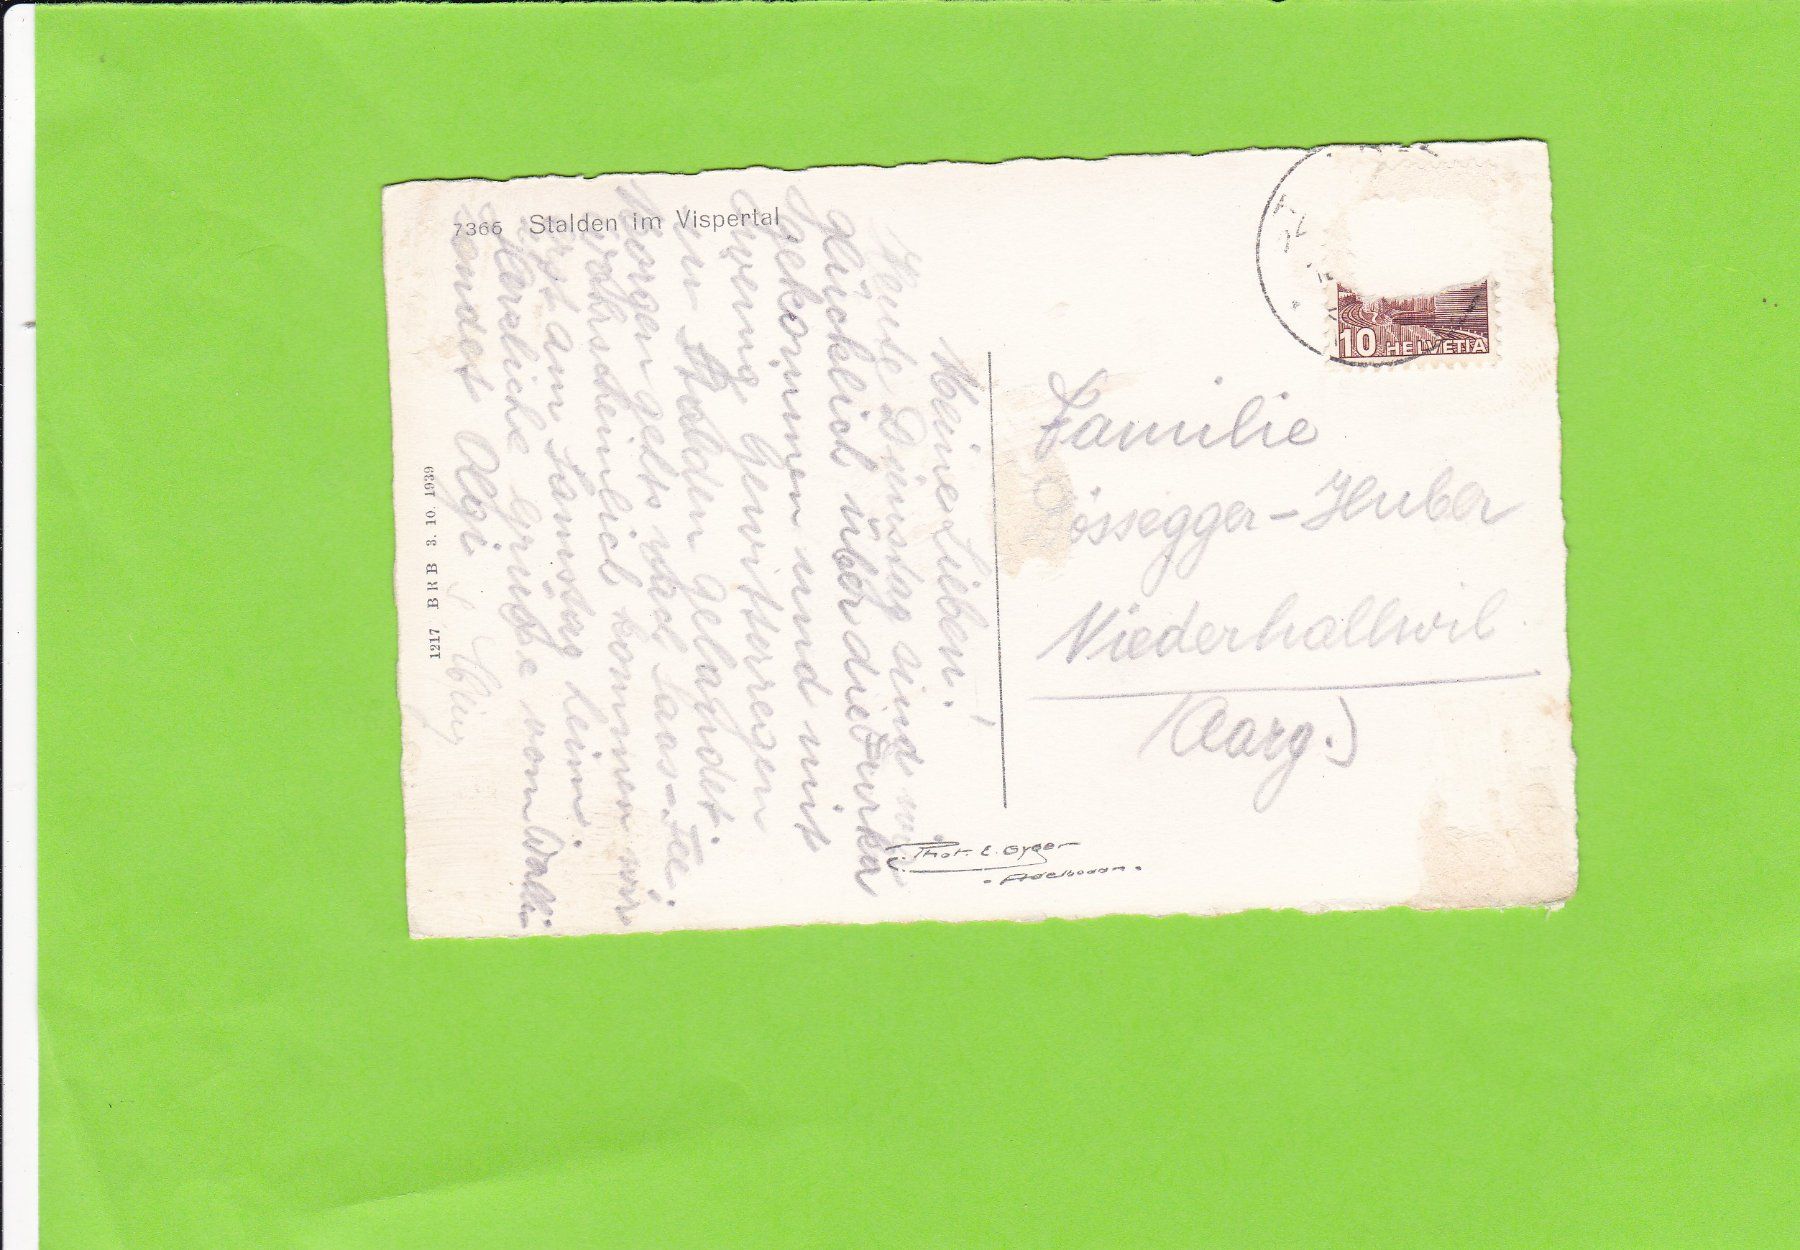 7366 Stalden im Vispertal
1217 B R B 3. 10. 1939
Meine Lieben!
Heute Dienstag sind wir
glücklich über die Furka
gekommen und mit
wenig Gewitterregen
in Stalden gelandet.
Morgen gehts nach Saas-Fee,
wahrscheinlich kommen wir
erst am Samstag heim.
Herzliche Grüsse vom Wallis
sendet Olgi
10 HELVETIA
Familie
össegger-Huber
Niederhallwil
(Aarg.)
Phot. E. Gyger
Adelboden